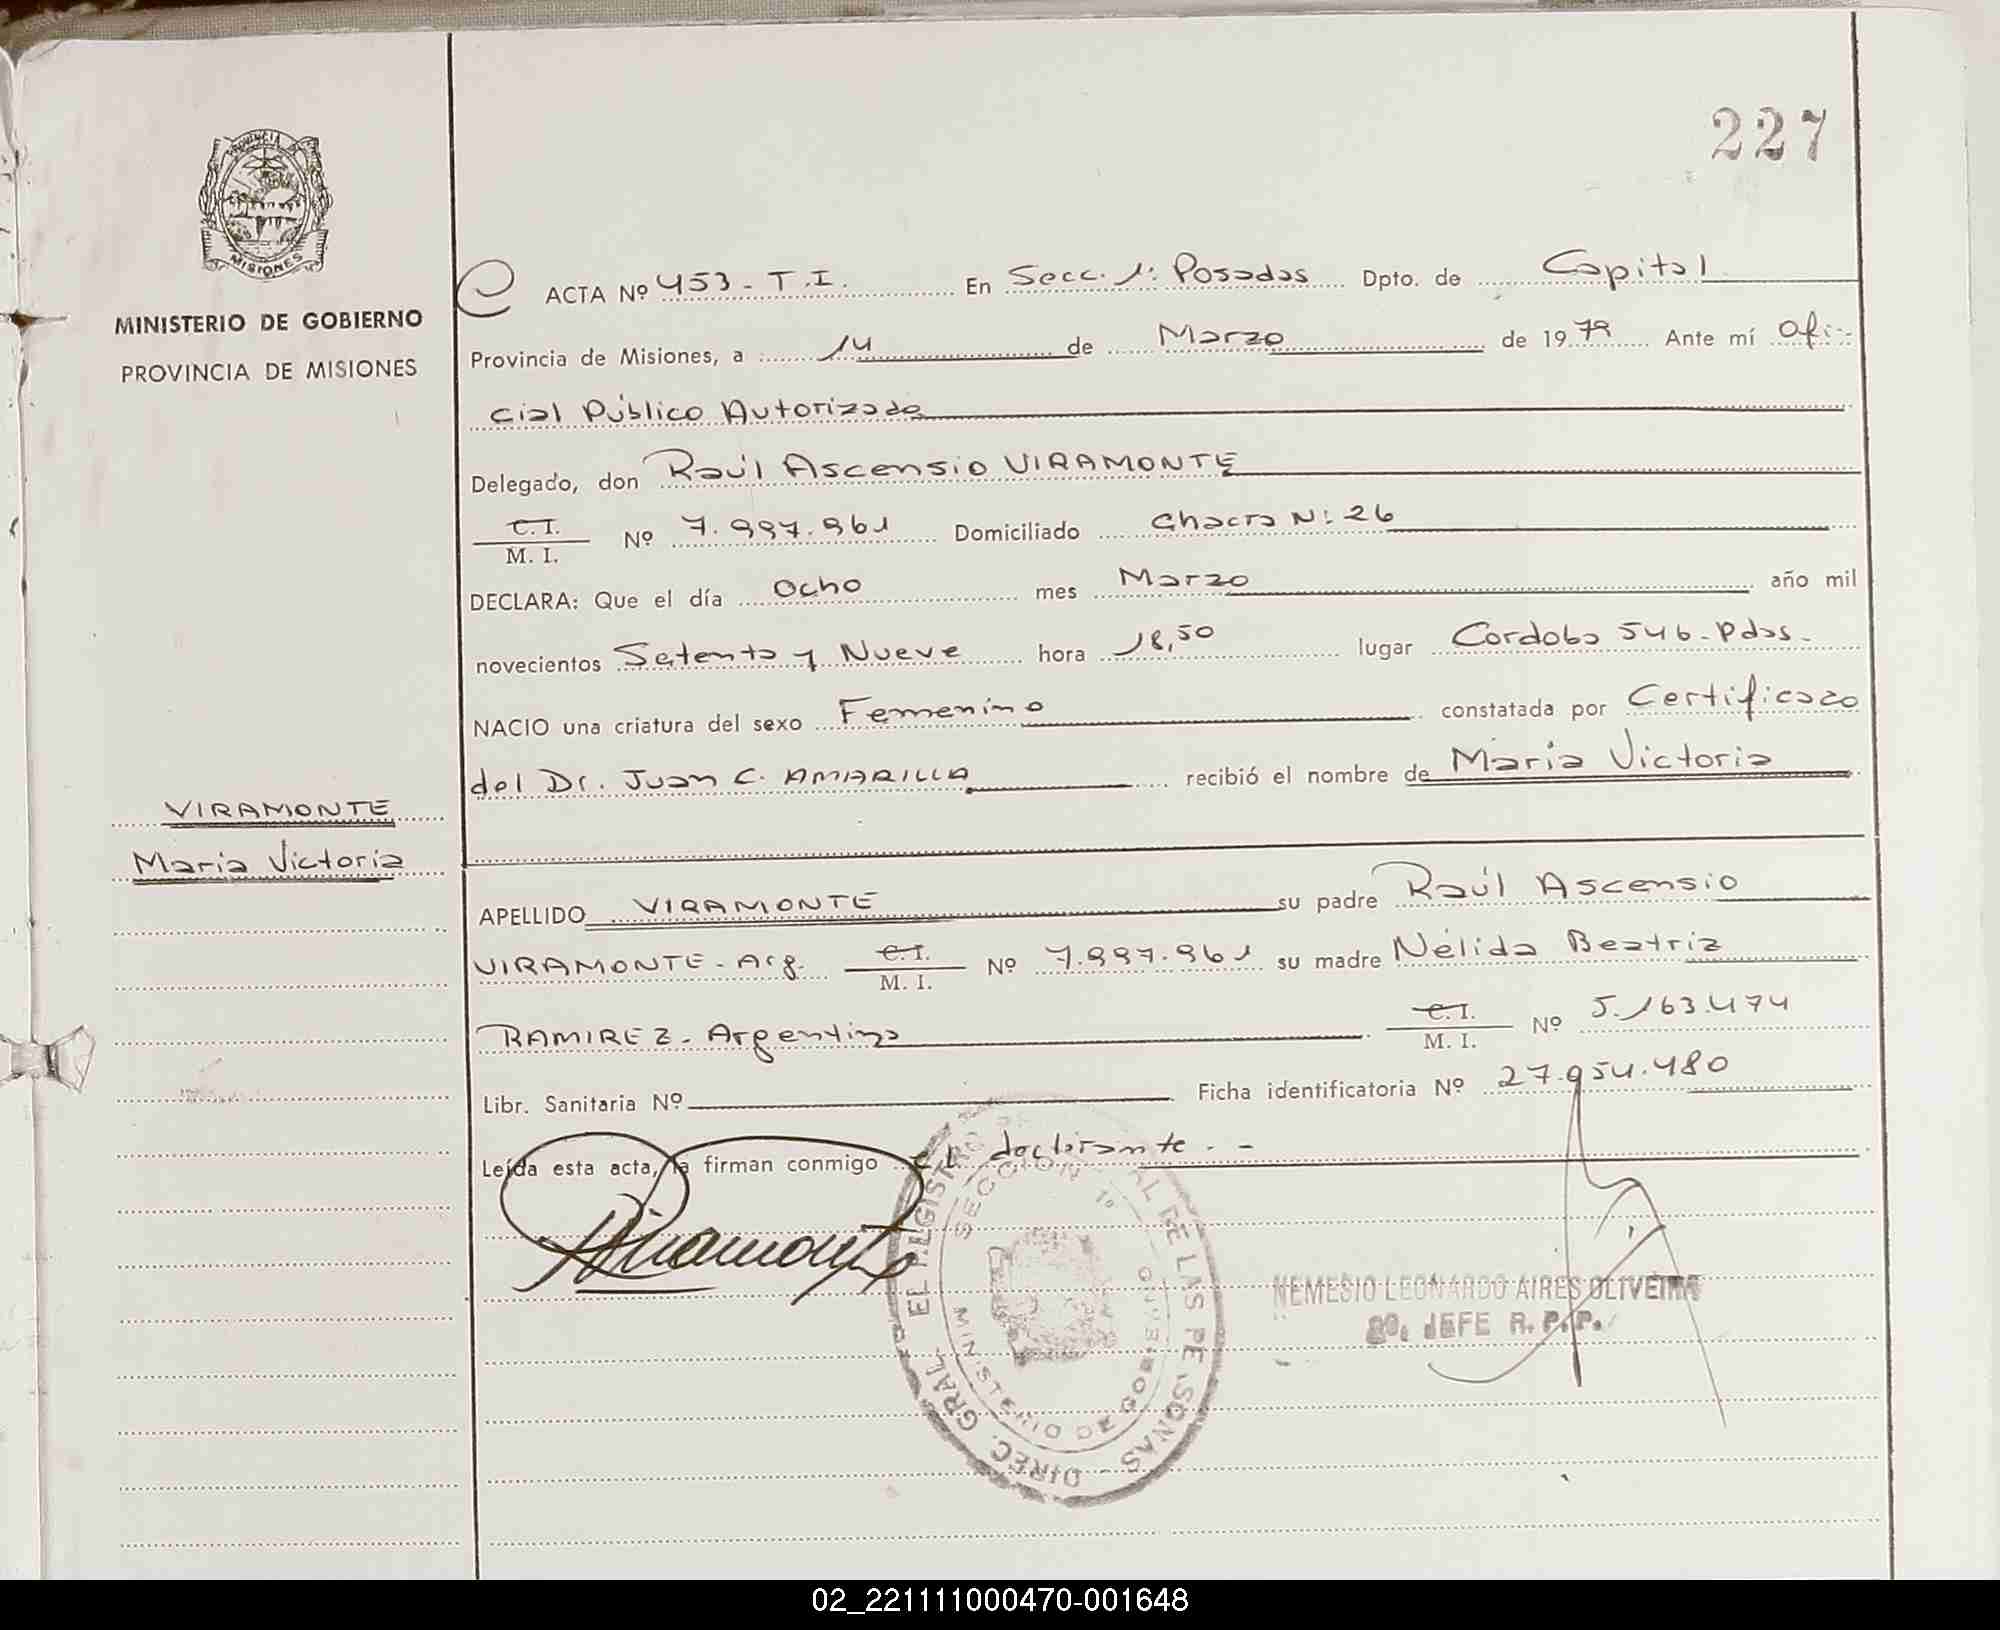 227
PROVINCIA DE
MISIONES
MINISTERIO DE GOBIERNO
PROVINCIA DE MISIONES
ACTA Nº 453 - T.I. En Secc. 1: Posadas Dpto. de Capital
Provincia de Misiones, a 14 de Marzo de 1979 Ante mí Ofi-
cial Público Autorizado
Delegado, don Raúl Ascensio VIRAMONTE
C. I.
M. I. Nº 7.997.961 Domiciliado Chacra N: 26
DECLARA: Que el día Ocho mes Marzo año mil
novecientos Setenta y Nueve hora 18,50 lugar Cordoba 546 - Pdas -
NACIO una criatura del sexo Femenino constatada por Certificado
del Dr. Juan C. AMARILLA recibió el nombre de María Victoria
VIRAMONTE
María Victoria
APELLIDO VIRAMONTE su padre Raúl Ascensio
VIRAMONTE - Arg. C. I. M. I. Nº 7.997.961 su madre Nélida Beatriz
RAMIREZ - Argentina C. I. M. I. Nº 5.163.474
Libr. Sanitaria Nº Ficha identificatoria Nº 27.954.480
Leída esta acta, la firman conmigo el declarante. -
Viramonte
DIREC. GRAL. DE LAS PERSONAS
SECCION 1º
MINISTERIO DE GOBIERNO
NEMESIO LEONARDO AIRES OLIVEIRA
2º. JEFE R. P. P.
02_221111000470-001648